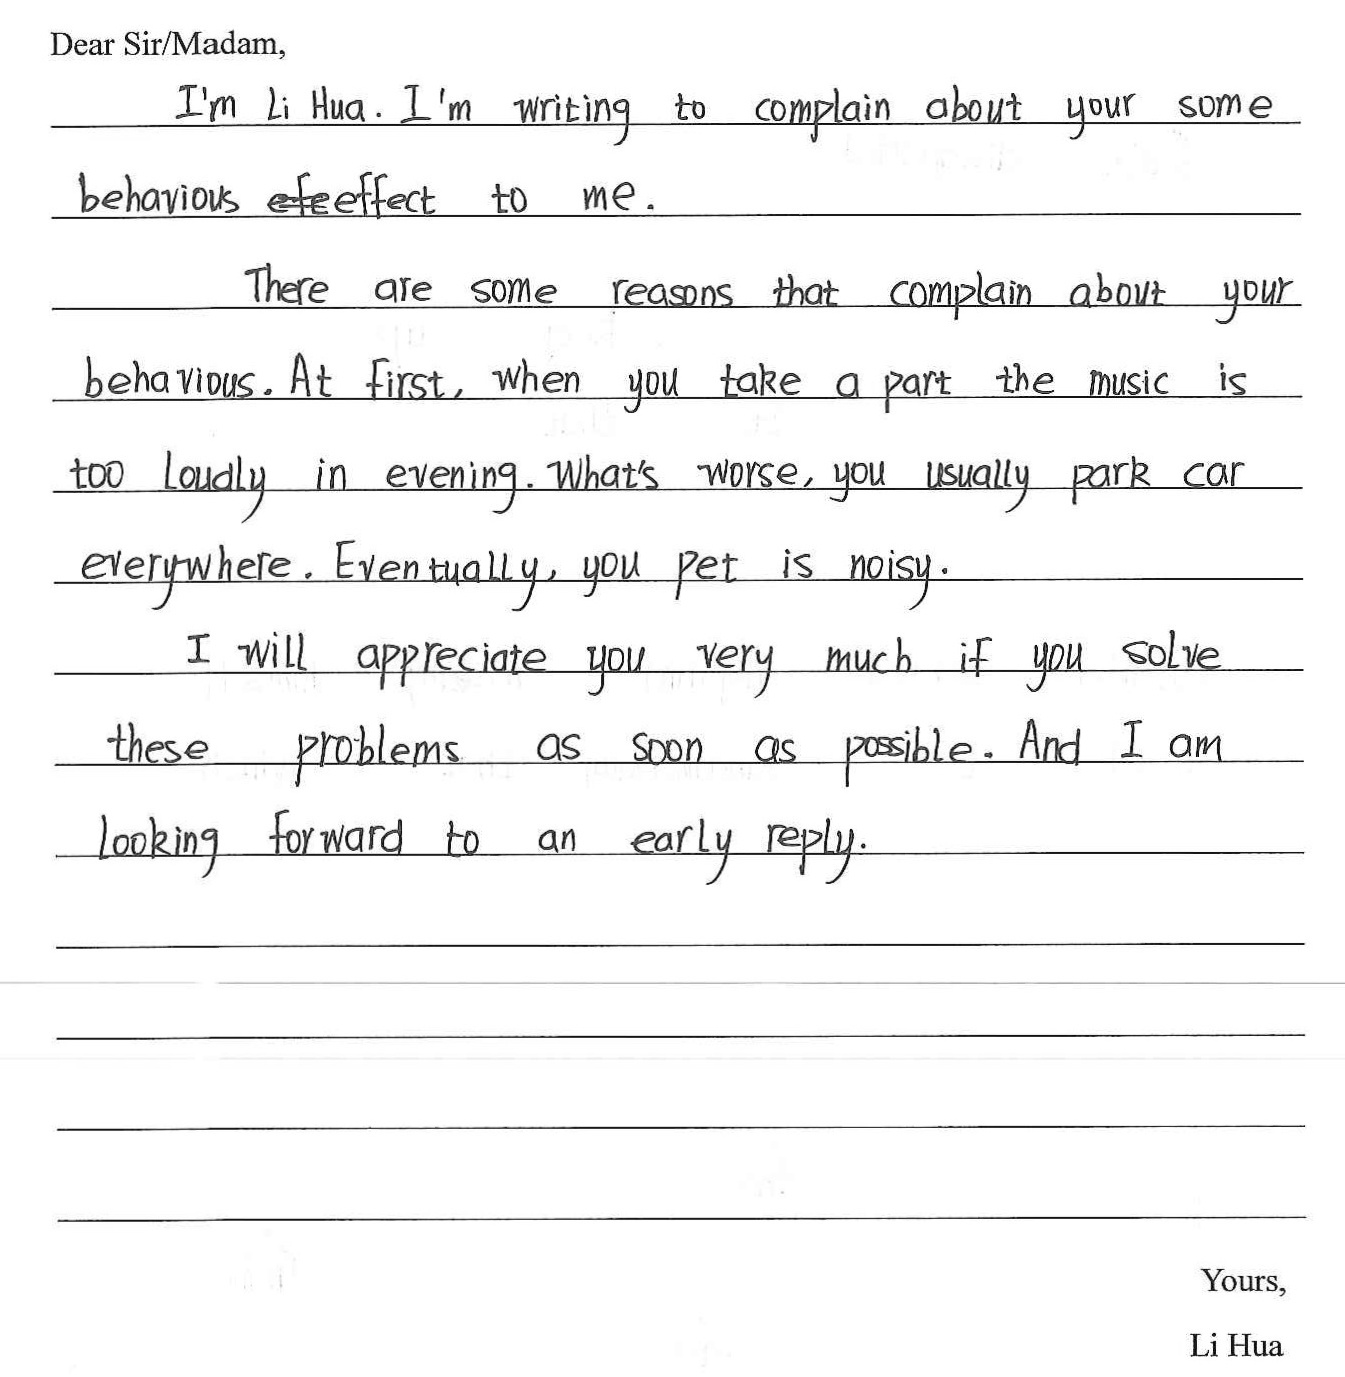 Dear Sir/Madam,
I'm Li Hua. I'm writing to complain about your some
behavious effect to me.
There are some reasons that complain about your
behavious. At first, when you take a part the music is
too loudly in evening. What's worse, you usually park car
everywhere. Eventually, you pet is noisy.
I will appreciate you very much if you solve
these problems as soon as possible. And I am
looking forward to an early reply.
Yours,
Li Hua